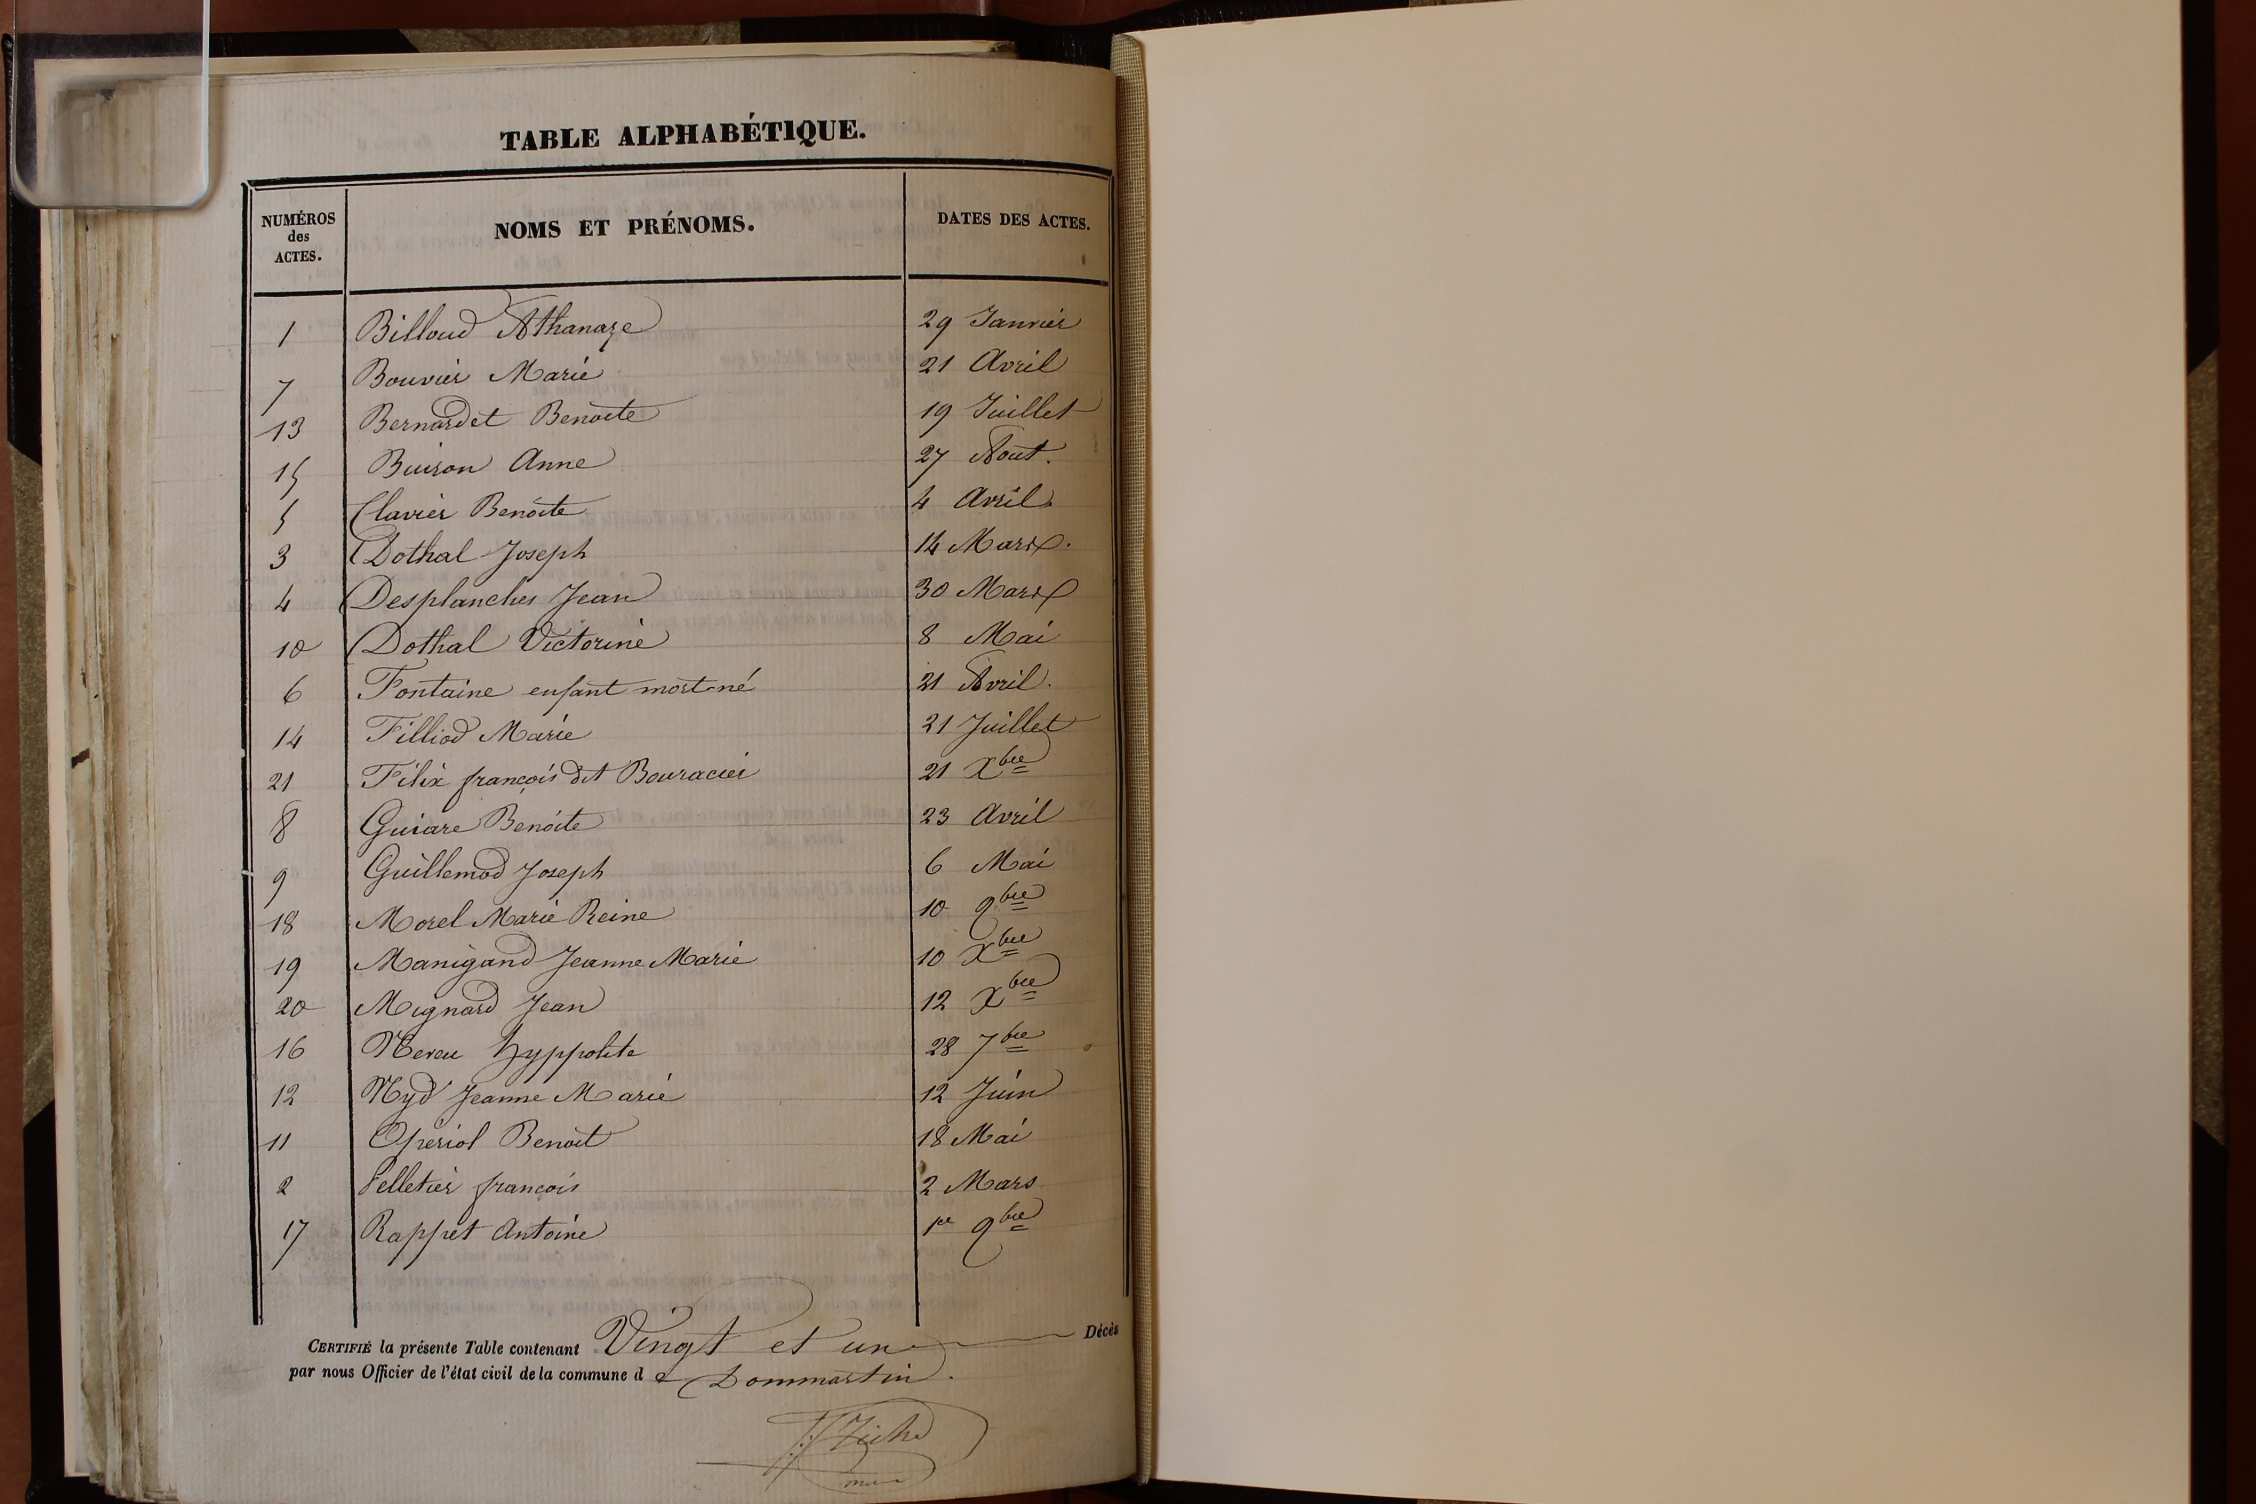 TABLE ALPHABÉTIQUE.
NUMÉROS des ACTES. NOMS ET PRÉNOMS. DATES DES ACTES.
1 Billoud Athanaze 29 Janvier
7 Bouvier Marie 21 Avril
13 Bernardet Benoite 19 Juillet
15 Buiron Anne 27 Aout.
5 Clavier Benoite 4 Avril
3 Dothal Joseph 14 Mars.
4 Desplanches Jean 30 Mars
10 Dothal Victorine 8 Mai
6 Fontaine enfant mort-né 21 Avril.
14 Filliod Marie 21 Juillet
21 Félix françois dit Bouracier 21 Xbre
8 Guiare Benoite 23 Avril
9 Guillemod Joseph 6 Mai
18 Morel Marie Reine 10 9bre
19 Manigand Jeanne Marie 10 Xbre
20 Mignard Jean 12 Xbre
16 Neveu hyppolite 28 7bre
12 Nyd Jeanne Marie 12 Juin
11 Opériol Benoit 18 Mai
2 Pelletier françois 2 Mars
17 Rappet Antoine 1er 9bre
CERTIFIÉ la présente Table contenant Vingt et un Décès
par nous Officier de l'état civil de la commune d e Dommartin.